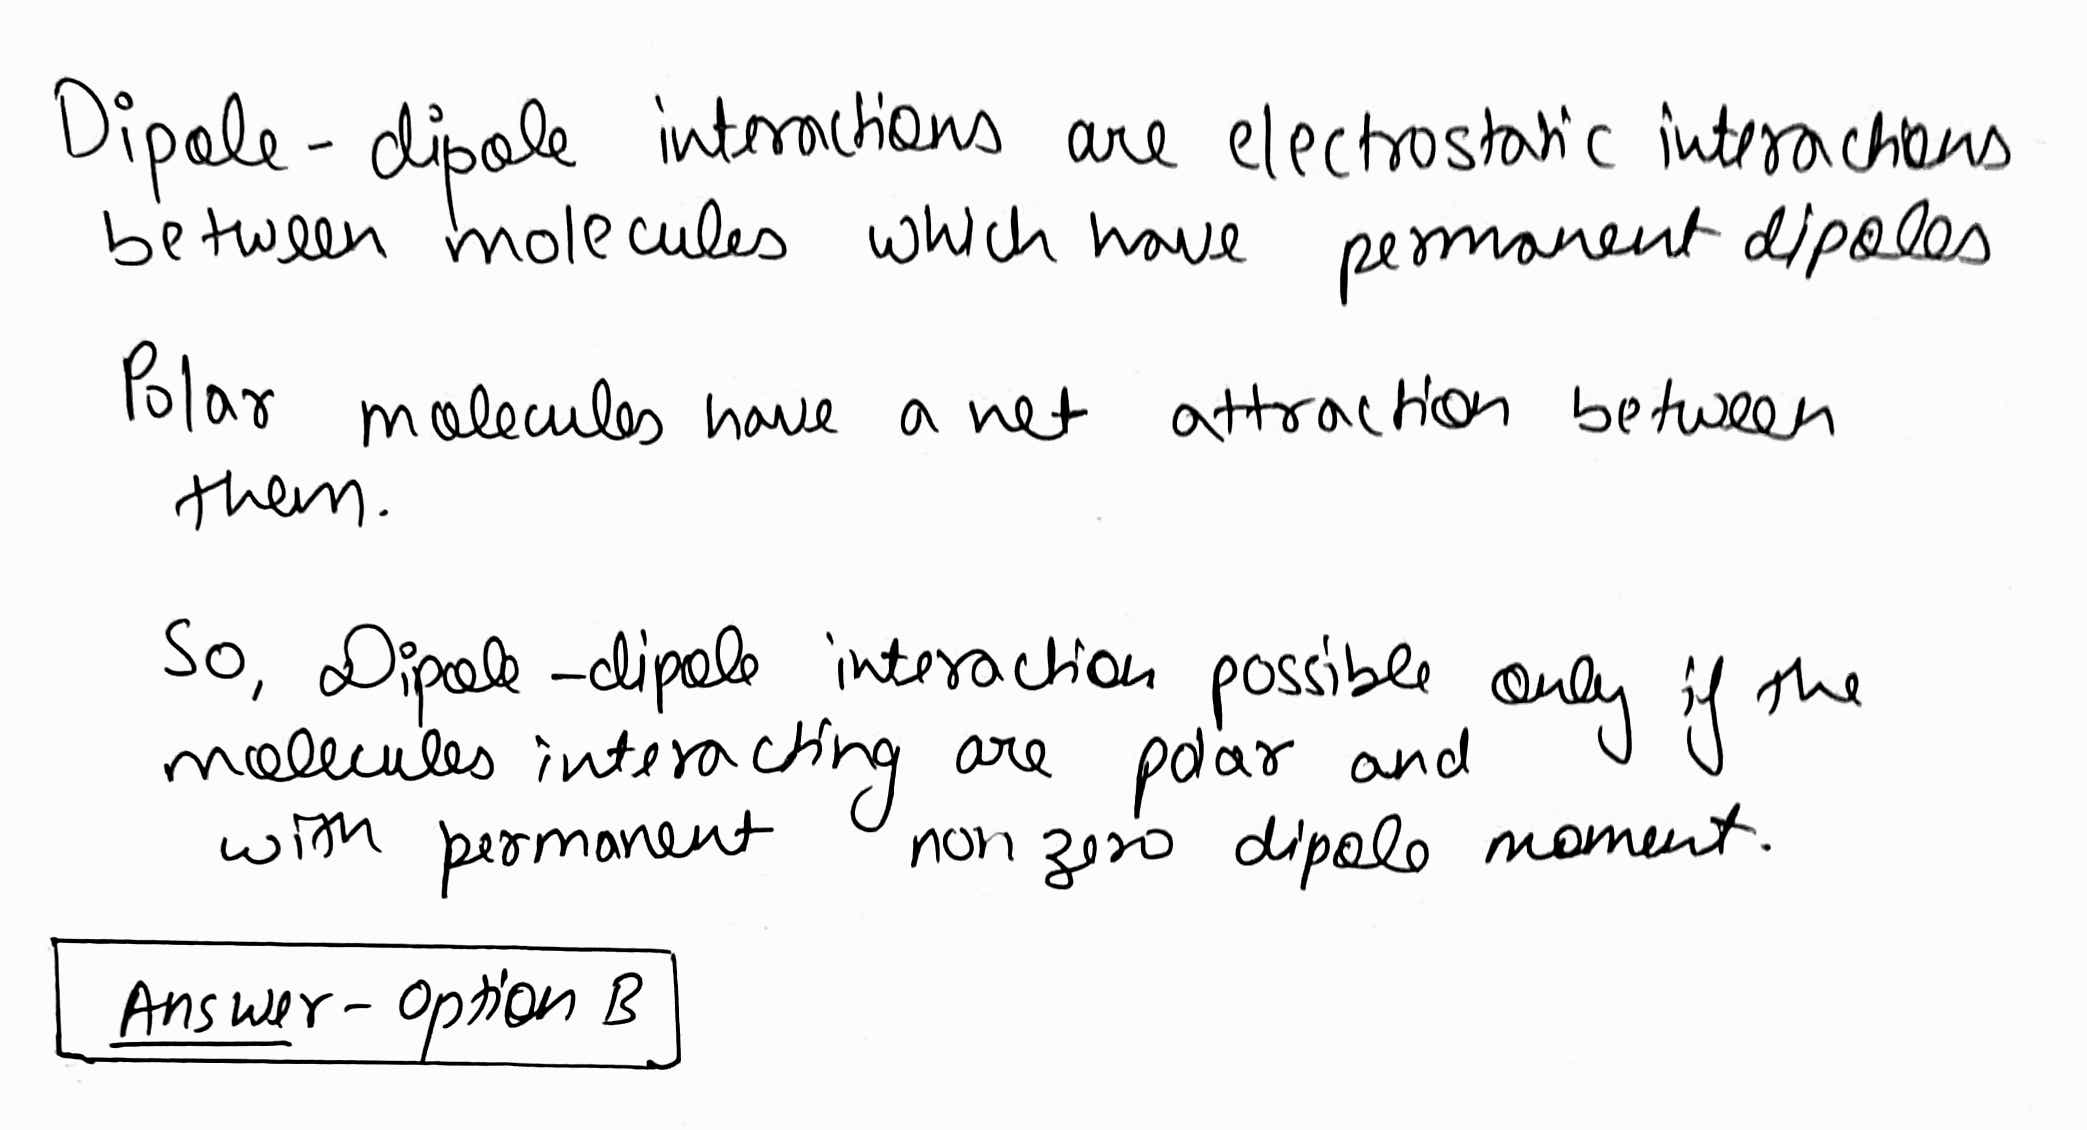 Dipole - dipole interactions are electrostatic interactions
between molecules which have permanent dipoles
Polar molecules have a net attraction between
them.
So, Dipole - dipole interaction possible only if the
molecules interacting are polar and
with permanent non zero dipole moment.
Answer - Option B